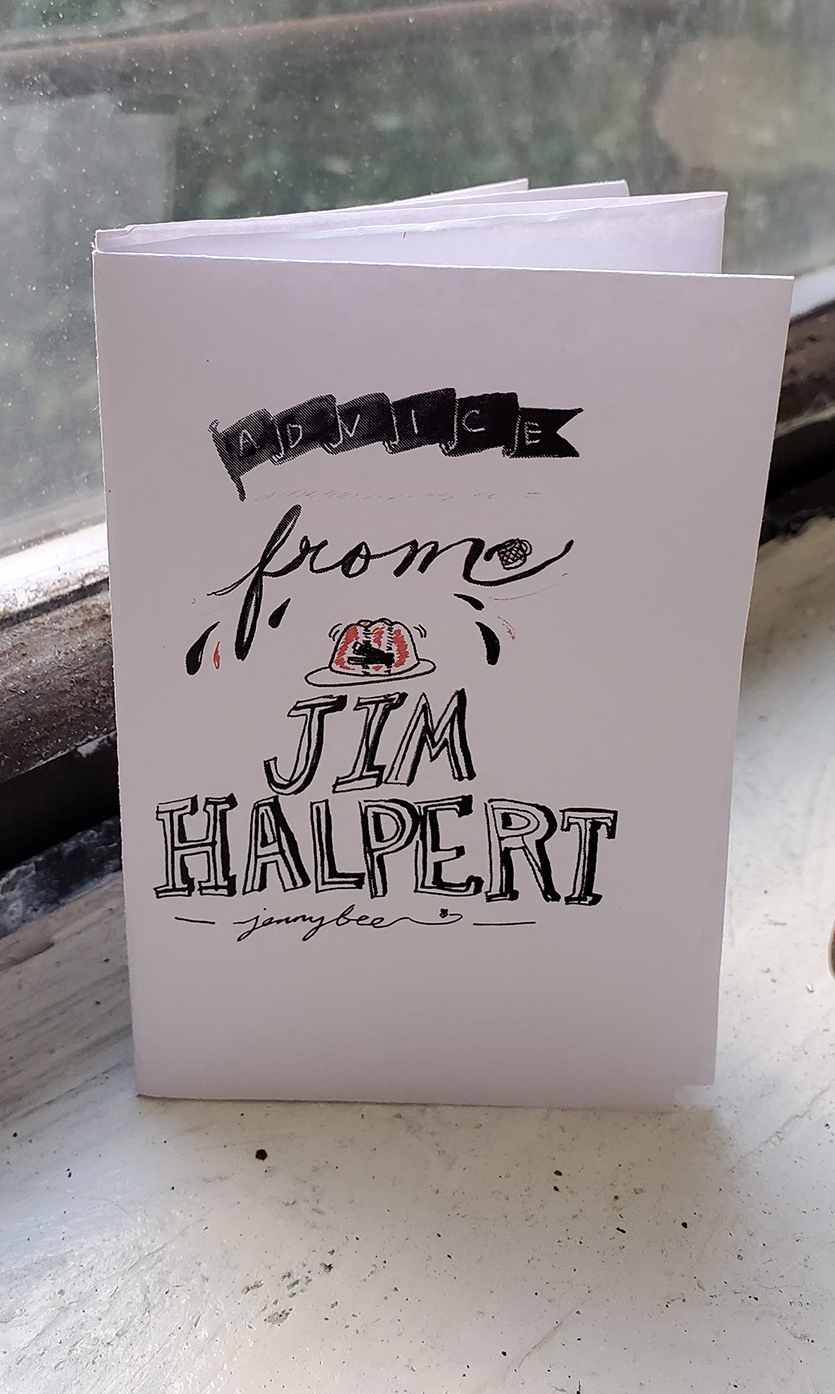 ADVICE
from
JIM
HALPERT
jennybee